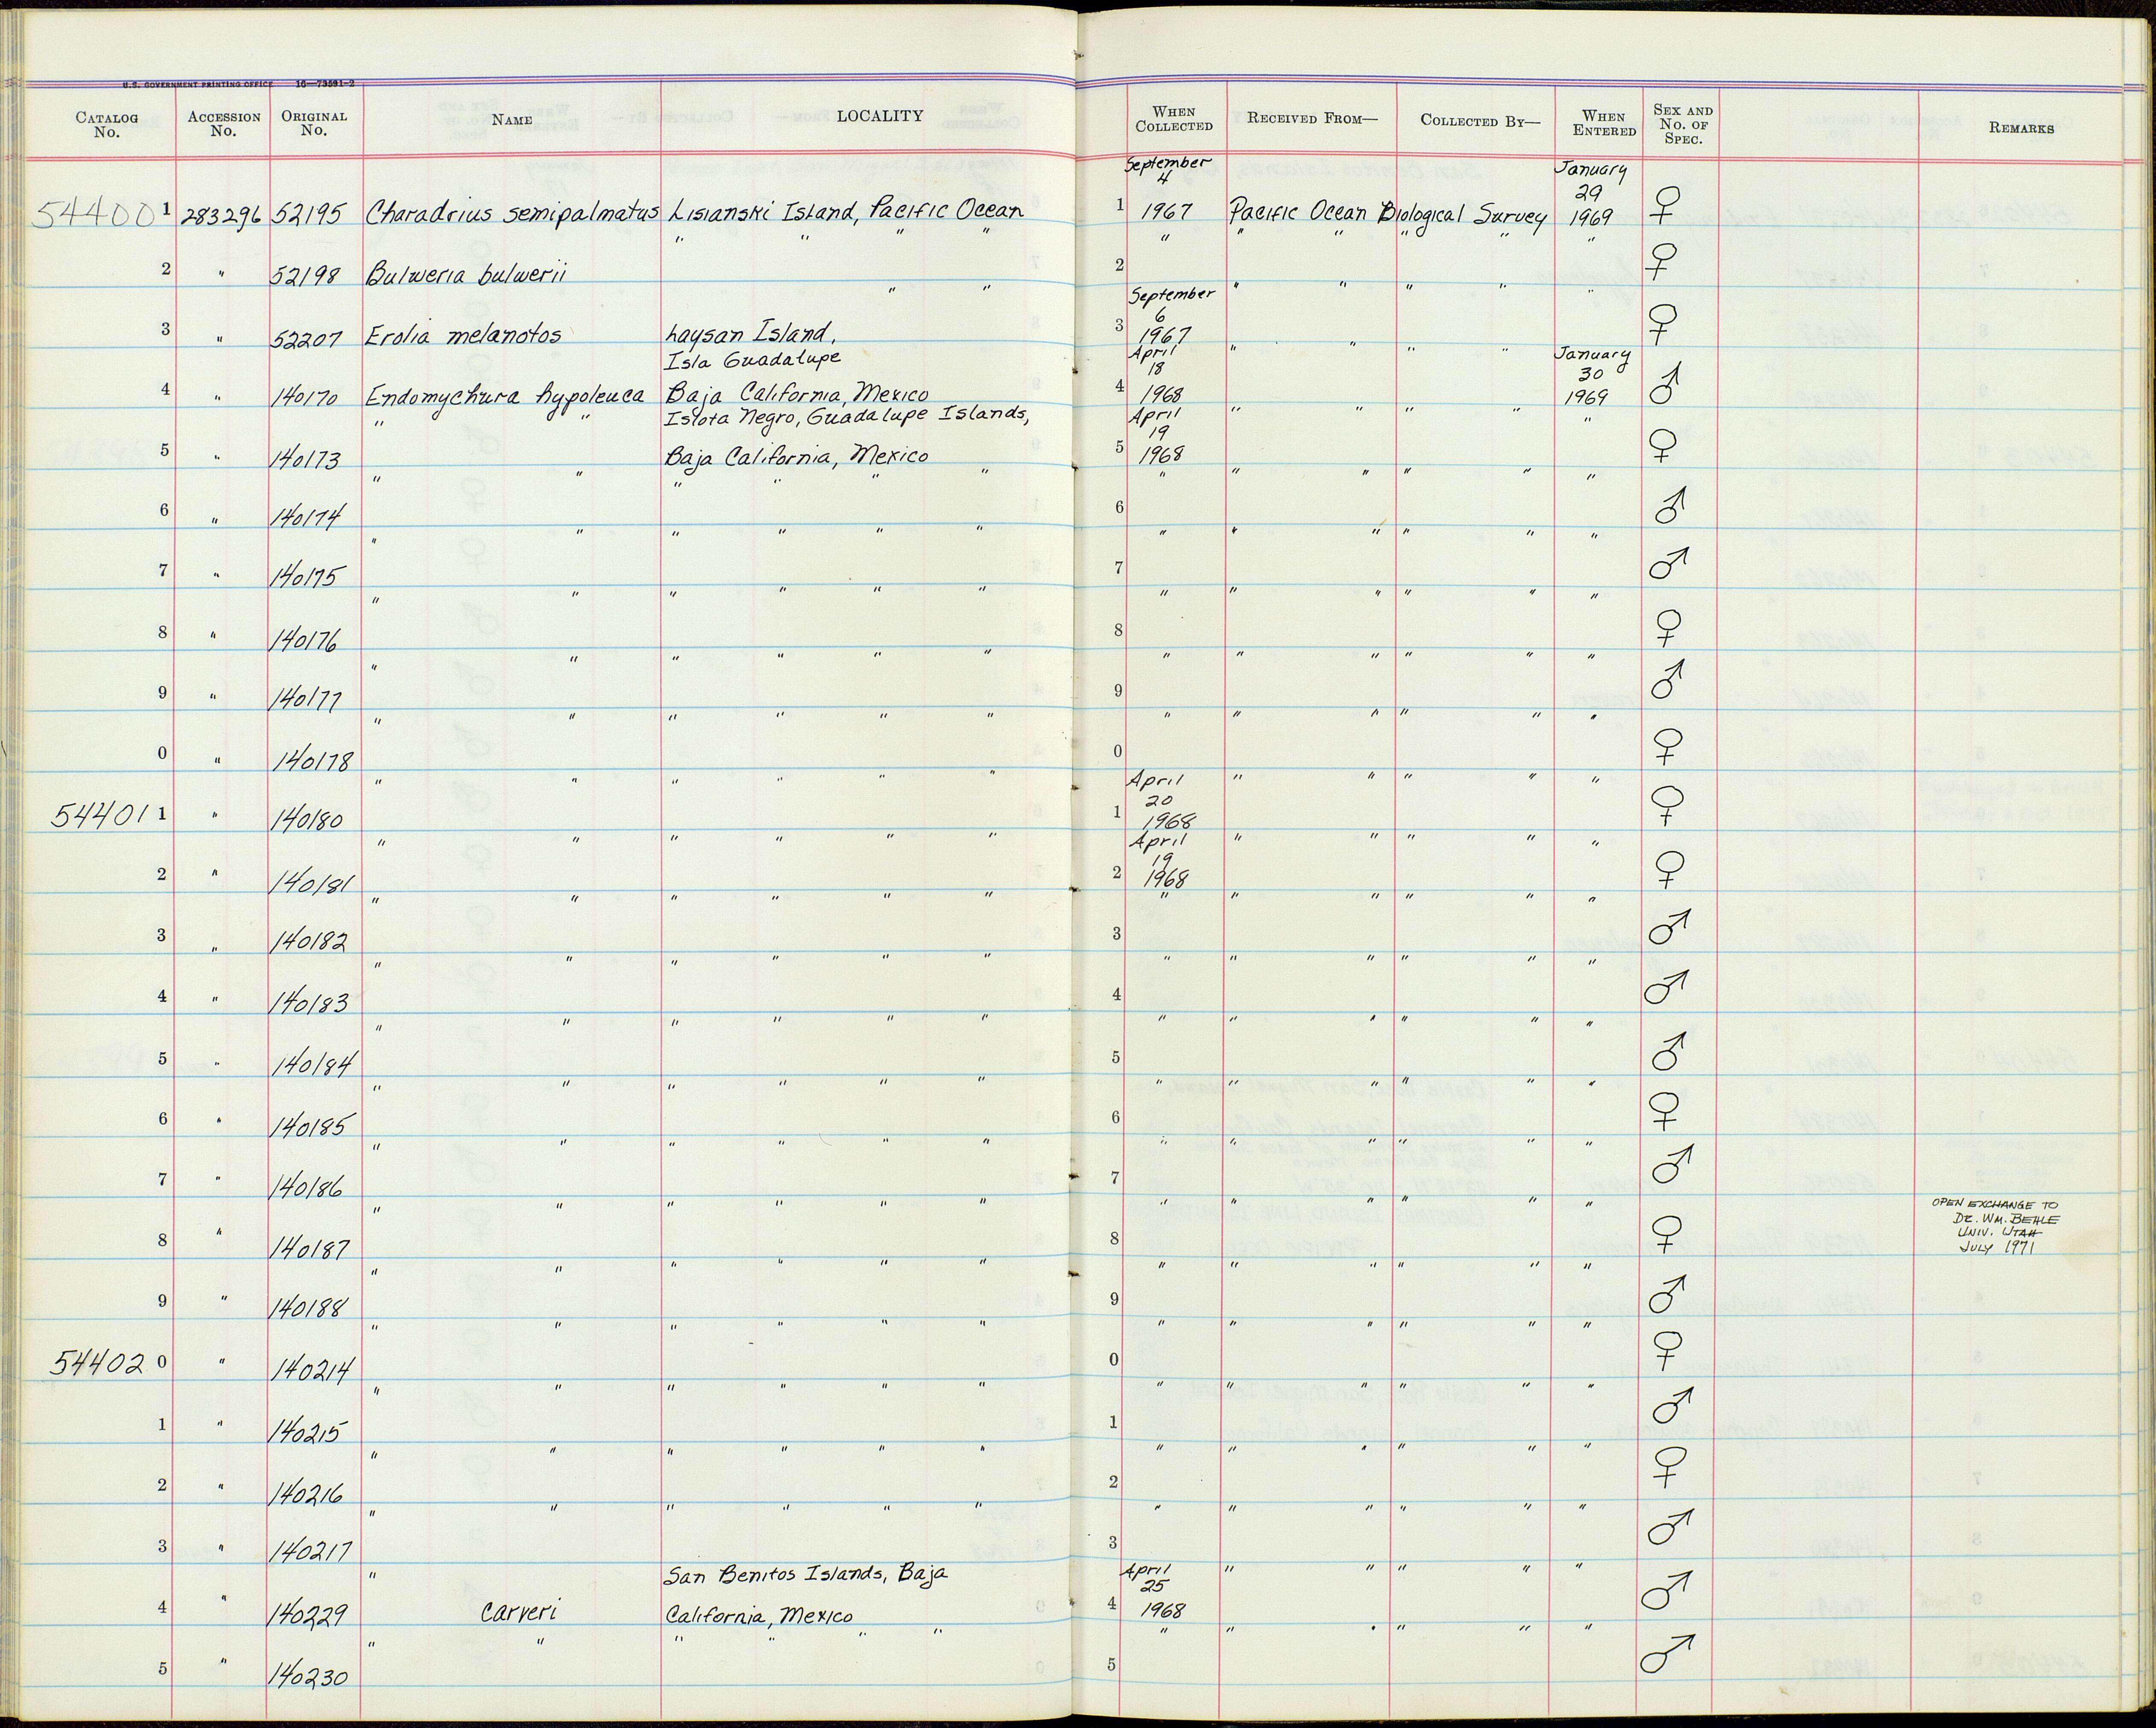 U.S. GOVERNMENT PRINTING OFFICE 16—73591-2
CATALOG No. ACCESSION No. ORIGINAL No. NAME LOCALITY WHEN COLLECTED RECEIVED FROM— COLLECTED BY— WHEN ENTERED SEX AND No. OF SPEC. REMARKS
544001 283296 52195 Charadrius semipalmatus Lisianski Island, Pacific Ocean 1 September 4 1967 Pacific Ocean Biological Survey January 29 1969 ♀
2 " 52198 Bulweria bulwerii " " " " 2 " " " " " " ♀
3 " 52207 Erolia melanotos Laysan Island, " " 3 September 6 1967 " " " " " ♀
4 " 140170 Endomychura hypoleuca Isla Guadalupe Baja California, Mexico 4 April 18 1968 " " " " January 30 1969 ♂
5 " 140173 " " Islota Negro, Guadalupe Islands, Baja California, Mexico 5 April 19 1968 " " " " " ♀
6 " 140174 " " " " " " 6 " " " " " " ♂
7 " 140175 " " " " " " 7 " " " " " " ♂
8 " 140176 " " " " " " 8 " " " " " " ♀
9 " 140177 " " " " " " 9 " " " " " " ♂
0 " 140178 " " " " " " 0 " " " " " " ♀
544011 " 140180 " " " " " " 1 April 20 1968 " " " " " ♀
2 " 140181 " " " " " " 2 April 19 1968 " " " " " ♀
3 " 140182 " " " " " " 3 " " " " " " ♂
4 " 140183 " " " " " " 4 " " " " " " ♂
5 " 140184 " " " " " " 5 " " " " " " ♂
6 " 140185 " " " " " " 6 " " " " " " ♀
7 " 140186 " " " " " " 7 " " " " " " ♂
8 " 140187 " " " " " " 8 " " " " " " ♀ OPEN EXCHANGE TO
DR. WM. BEHLE
UNIV. UTAH
JULY 1971
9 " 140188 " " " " " " 9 " " " " " " ♂
544020 " 140214 " " " " " " 0 " " " " " " ♀
1 " 140215 " " " " " " 1 " " " " " " ♂
2 " 140216 " " " " " " 2 " " " " " " ♀
3 " 140217 " " " " " " 3 " " " " " " ♂
4 " 140229 " carveri San Benitos Islands, Baja California, Mexico 4 April 25 1968 " " " " " ♂
5 " 140230 " " " " " " 5 " " " " " " ♂